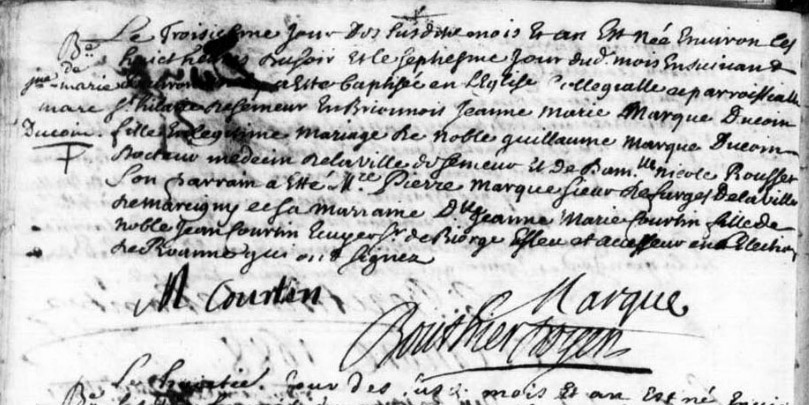 Le Troisiesme Jour Des susdits mois Et an Est Née Environ Les
huict heures du soir Et le septiesme Jour dud. mois Ensuivant
a Esté Baptisée en L'Eglise Collegialle et parroissialle
St hilaire de semeur En Brionnois Jeanne Marie Marque Ducoin
fille En legitime mariage de noble guillaume Marque Ducoin
docteur medecin de la ville de semeur Et de Dam.lle nicole Rousset
son parrain a Etté Mre Pierre Marque sieur de farges De la Ville
de marcigny et sa marraine Dlle Jeanne Marie Courtin fille de
noble Jean Courtin Escuyer sr de Biorge Esleu et assesseur en Election
de Roanne qui ont signez
Bme de
jne marie
marc
Ducoin.
M Courtin
Marque
Bouthier doyen
Le huictie. Jour des susd. mois Et an Est né
Bme